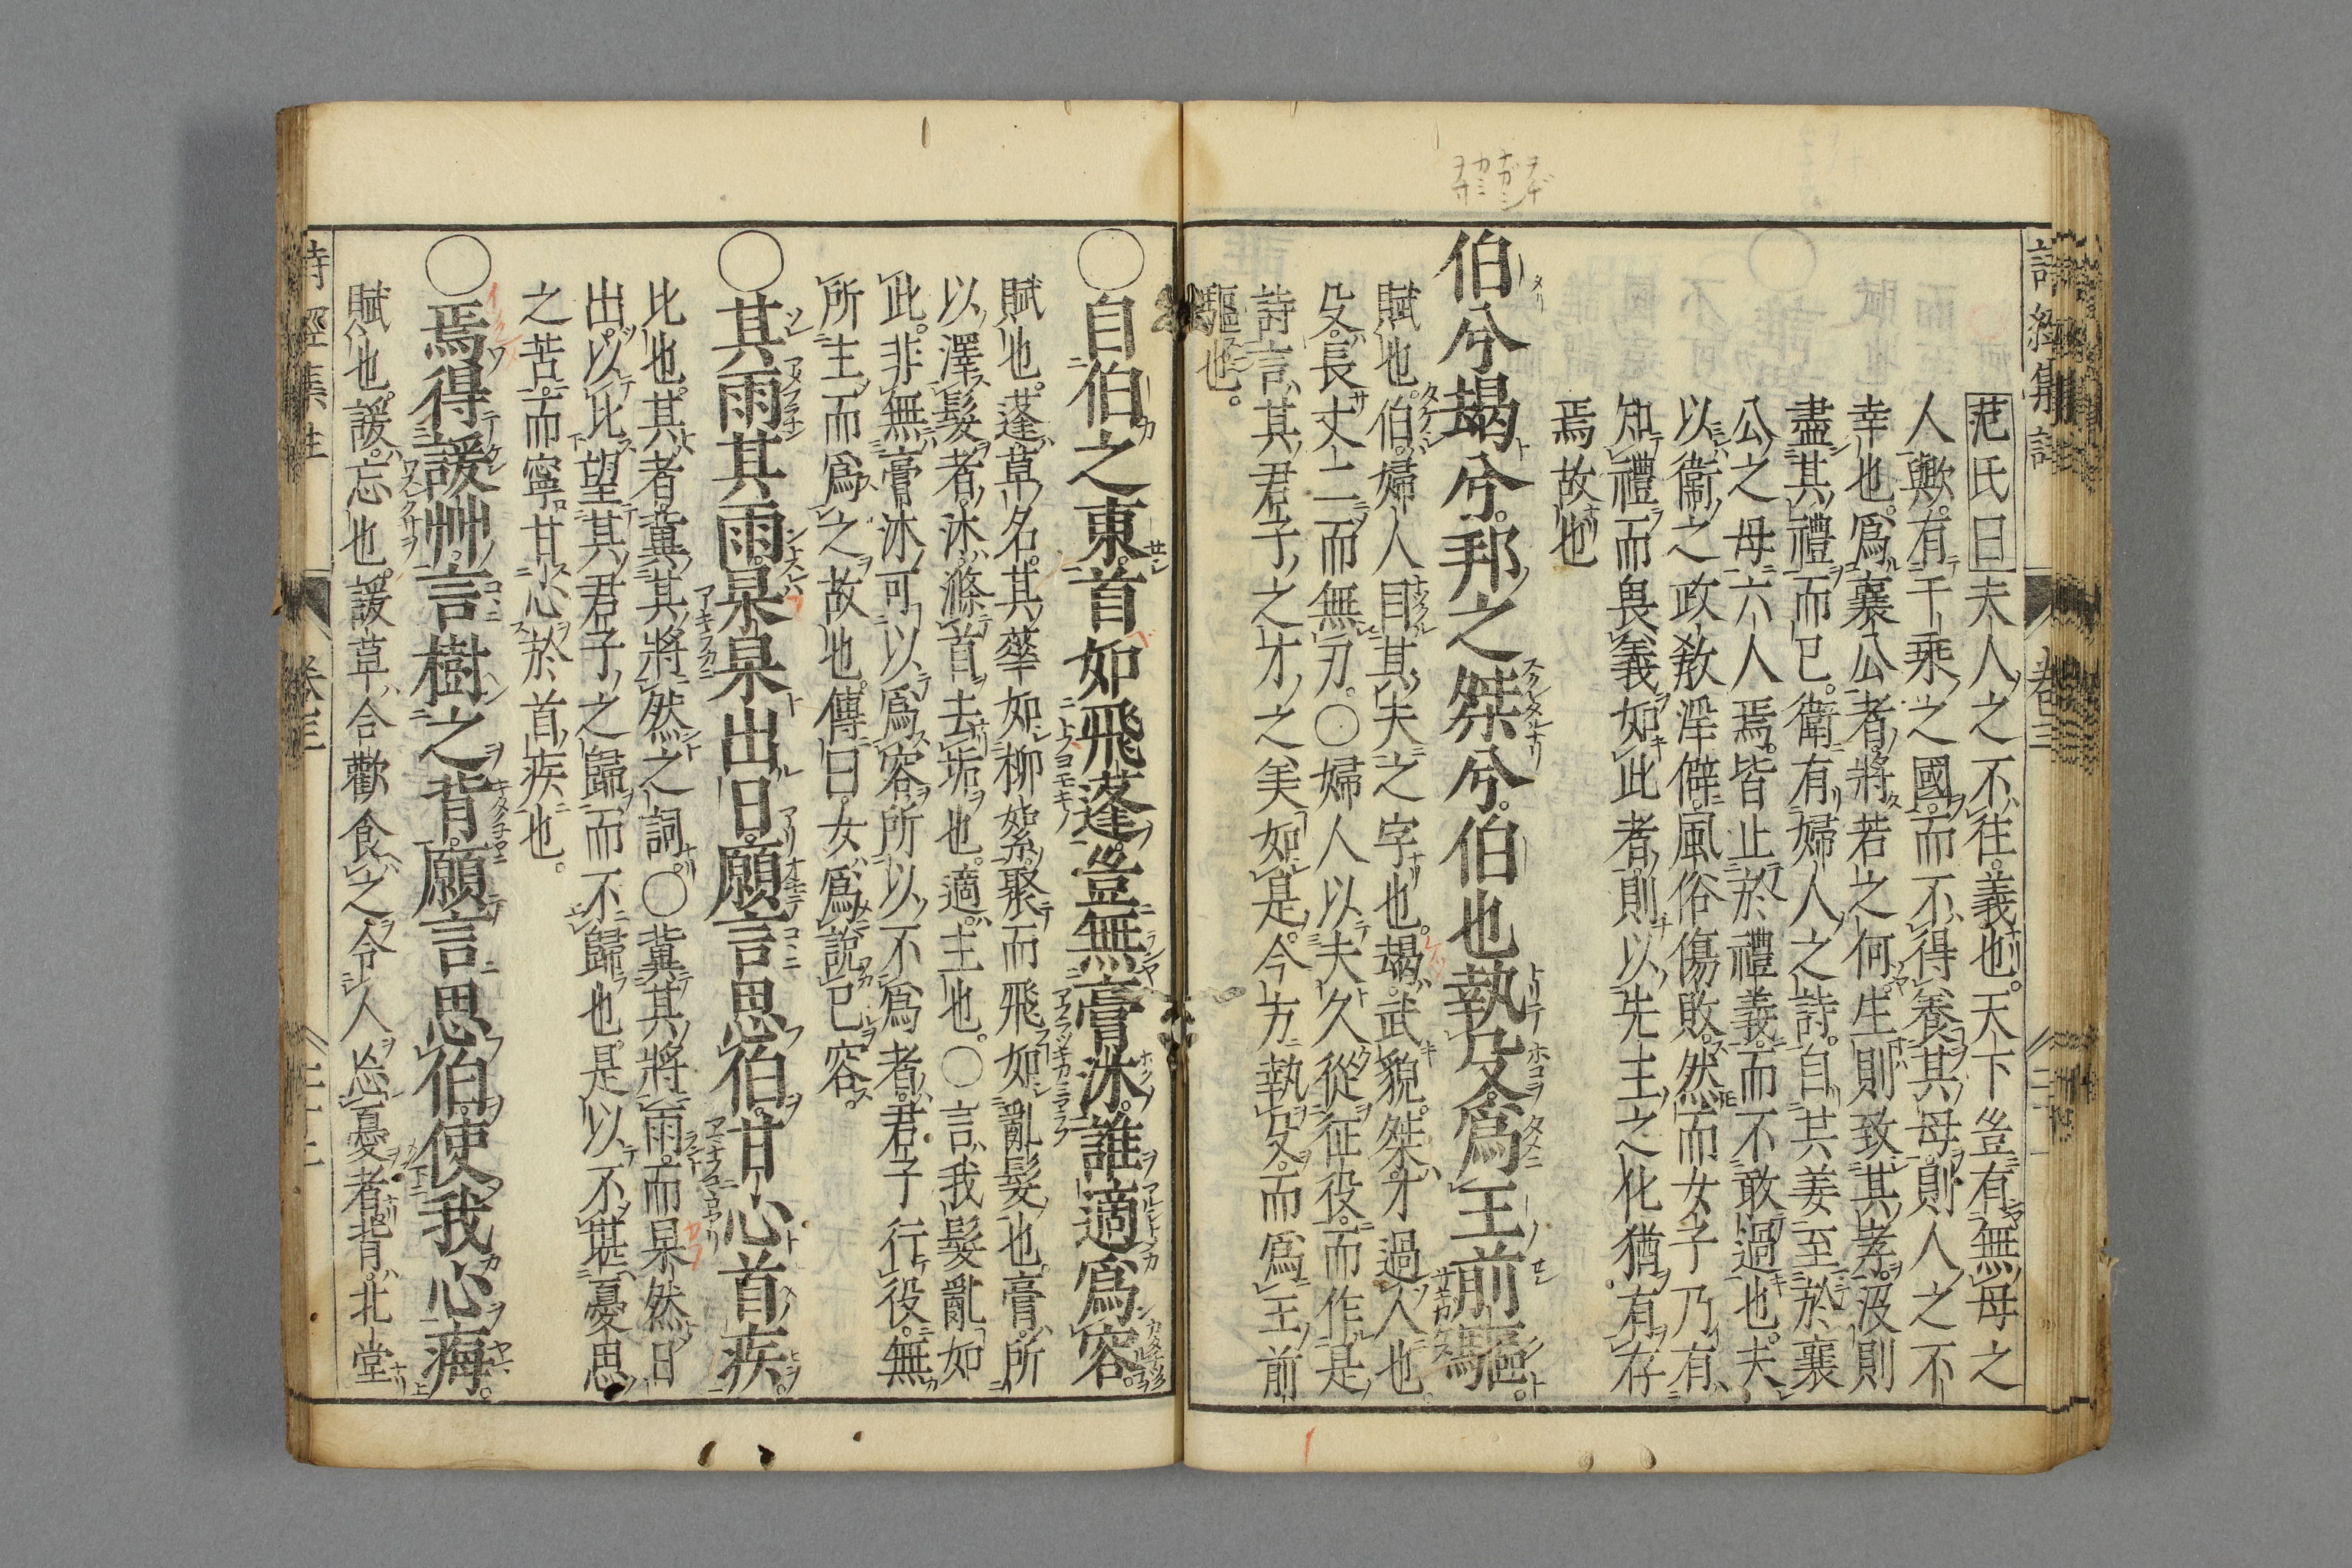 詩經集註 卷三 二十一
范氏曰夫人之不往義也天下豈有無母之
人歟有千乘之國而不得養其母則人之不
幸也爲襄公者將若之何生則致其孝沒則
盡其禮而已衛有婦人之詩自共姜至於襄
公之母六人焉皆止於禮義而不敢過也夫
以衞之政教淫僻風俗傷敗然而女子乃有
知禮而畏義如此者則以先王之化猶有存
焉故也
伯兮朅兮邦之桀兮伯也執殳爲王前驅
賦也伯婦人目其夫之字也朅武貌桀才過人也
殳長丈二而無刃○婦人以夫久從征役而作是
詩言其君子之才之美如是今方執殳而爲王前
驅也
○自伯之東首如飛蓬豈無膏沐誰適爲容
賦也蓬草名其華如柳絮聚而飛如亂髮也膏所
以澤髮者沐滌首去垢也適主也○言我髮亂如
此非無膏沐可以爲容所以不爲者君子行役無
所主而爲之故也傳曰女爲說已容
○其雨其雨杲杲出日願言思伯甘心首疾
比也其者冀其將然之詞○冀其將雨而杲然日
出以比望其君子之歸而不歸也是以不堪憂思
之苦而寧甘心於首疾也
○焉得諼艸言樹之背願言思伯使我心痗
賦也諼忘也諼草合歡食之令人忘憂者背北堂
詩經集註 卷三 二十二